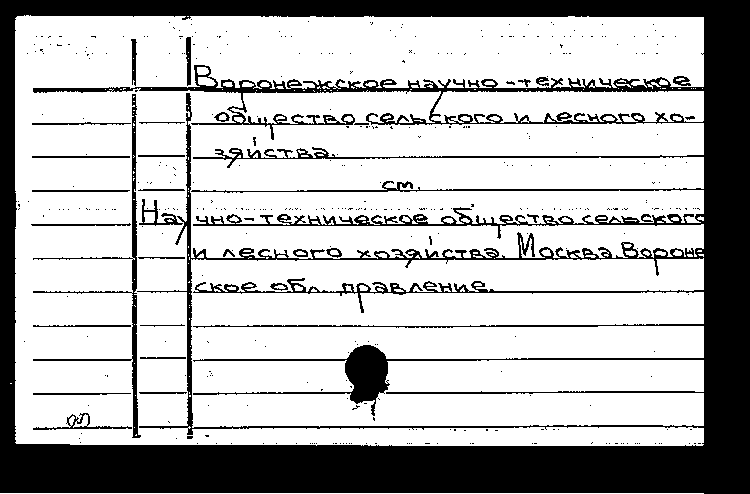 Воронежское научно-техническое
общество сельского и лесного хо-
зяйства.
см.
Научно-техническое общество сельского
и лесного хозяйства. Москва. Вороне
ское обл. правление.